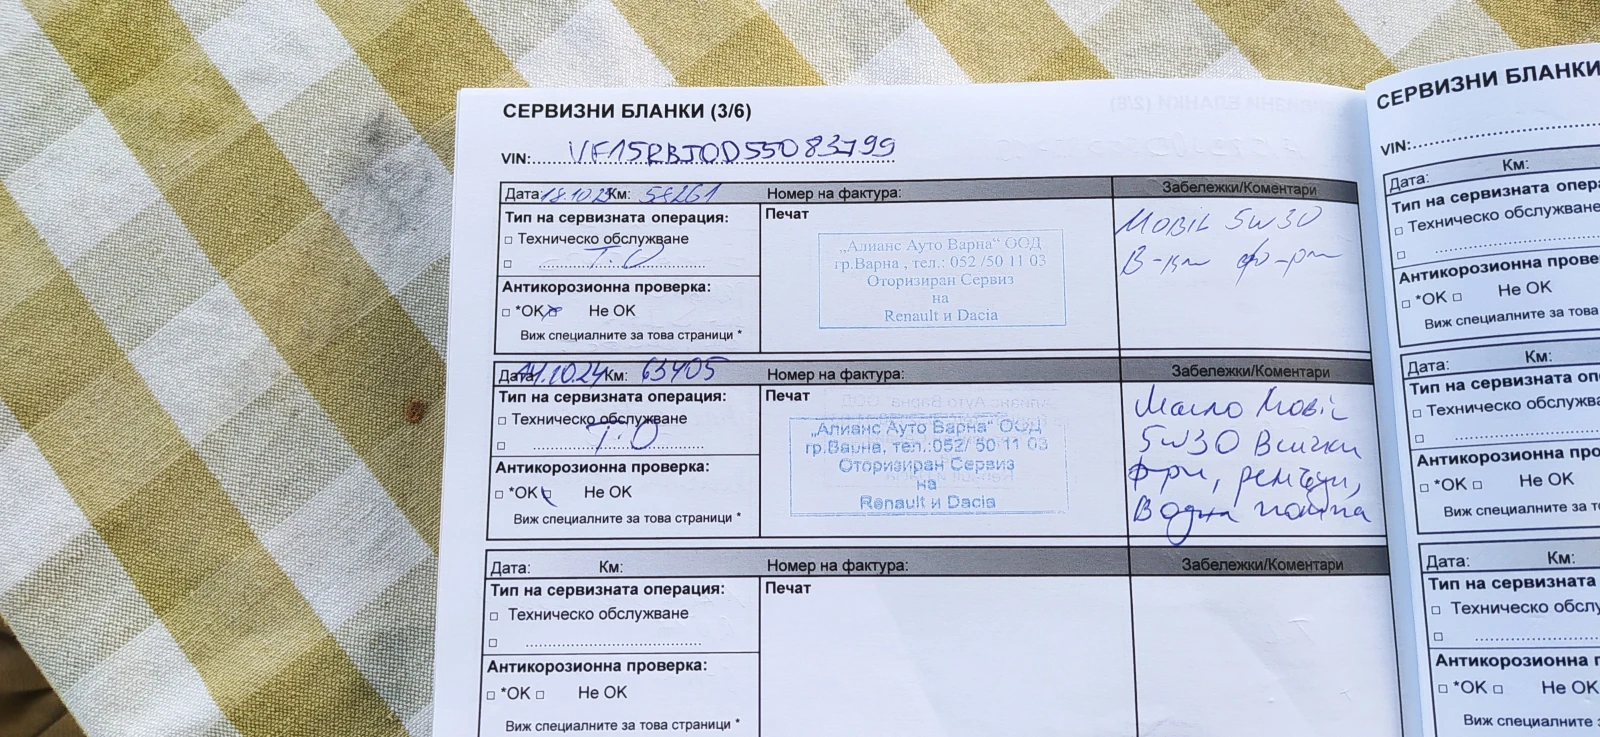 СЕРВИЗНИ БЛАНКИ (3/6)
VIN: VF15RBJOD55083799
Дата: 18.10.23 Км: 58261 Номер на фактура: Забележки/Коментари
Тип на сервизната операция: Печат
□ Техническо обслужване
□ Т.О
Антикорозионна проверка:
□ *OK □ Не ОК
Виж специалните за това страници *
„Алианс Ауто Варна“ ООД
гр.Варна , тел.: 052 /50 11 03
Оторизиран Сервиз
на
Renault и Dacia
MOBIL 5W30
Дата: 14.10.24 Км: 63405 Номер на фактура: Забележки/Коментари
Тип на сервизната операция: Печат
□ Техническо обслужване
□ Т.О
Антикорозионна проверка:
□ *OK □ Не ОК
Виж специалните за това страници *
„Алианс Ауто Варна“ ООД
гр.Варна, тел.:052/ 50 11 03
Оторизиран Сервиз
на
Renault и Dacia
Масло Mobil
5W30 Всички
ф-ри, ремъци,
Водна помпа
Дата: Км: Номер на фактура: Забележки/Коментари
Тип на сервизната операция: Печат
□ Техническо обслужване
□
Антикорозионна проверка:
□ *OK □ Не ОК
Виж специалните за това страници *
СЕРВИЗНИ БЛАНКИ
VIN:
Дата: Км:
Тип на сервизната опера
□ Техническо обслужване
□
Антикорозионна прове
□ *OK □ Не ОК
Виж специалните за това
Дата: Км:
Тип на сервизната оп
□ Техническо обслужва
□
Антикорозионна про
□ *OK □ Не ОК
Виж специалните за т
Дата: Км:
Тип на сервизната
□ Техническо обслу
□
Антикорозионна п
□ *OK □ Не ОК
Виж специалните